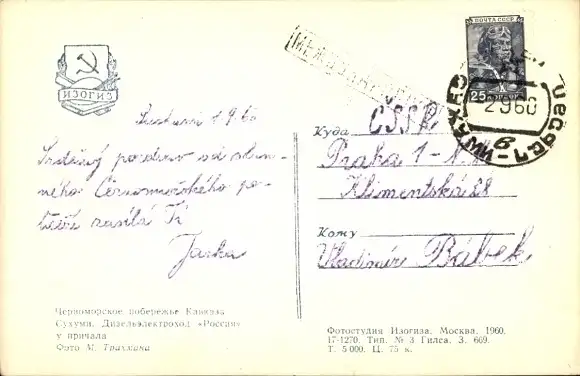 ИЗОГИЗ
Suchumi 1.9.60
Srdečný pozdrav od slun-
ného Černomořského po-
břeží zasílá Ti
Jarka
Черноморское побережье Кавказа
Сухуми. Дизельэлектроход «Россия»
у причала
Фото М. Трахмана
ПОЧТА СССР
25
2 9 60
МЕЖДУНАРОДНОЕ
Куда ČSSR
Praha 1 -
Klimentská 28
Кому
Vladimír Bábek
Фотостудия Изогиза. Москва. 1960.
17-1270. Тип. № 3 Гилса. З. 669.
Т. 5 000. Ц. 75 к.